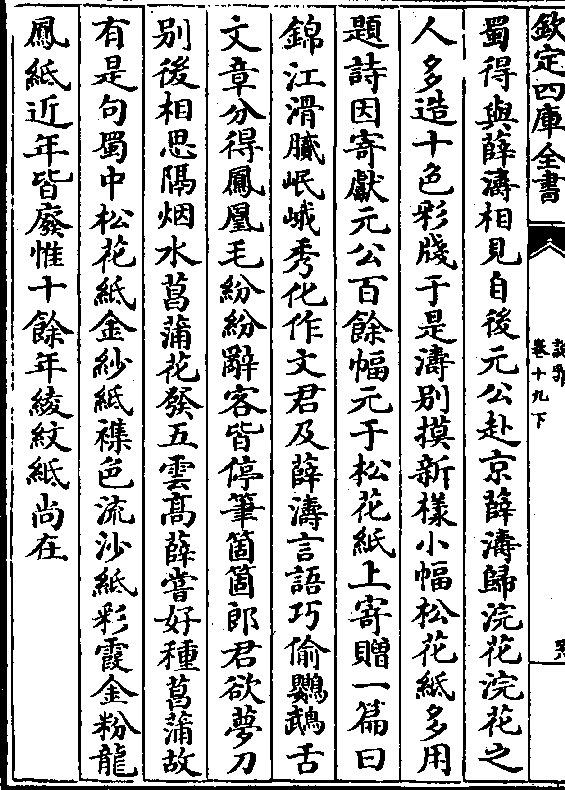 欽定四庫全書
說郛
卷十九下
蜀得與薛濤相見自後元公赴京薛濤歸浣花浣花之
人多造十色彩牋于是濤别摸新様小幅松花紙多用
題詩因寄獻元公百餘幅元于松花紙上寄贈一篇曰
錦江滑膩岷峨秀化作文君及薛濤言語巧偷鸚鵡舌
文章分得鳳凰毛紛紛辭客皆停筆箇箇郎君欲夢刀
别後相思隔烟水菖蒲花發五雲髙薛嘗好種菖蒲故
有是句蜀中松花紙金紗紙襍色流沙紙彩霞金粉龍
鳳紙近年皆廢惟十餘年綾紋紙尚在